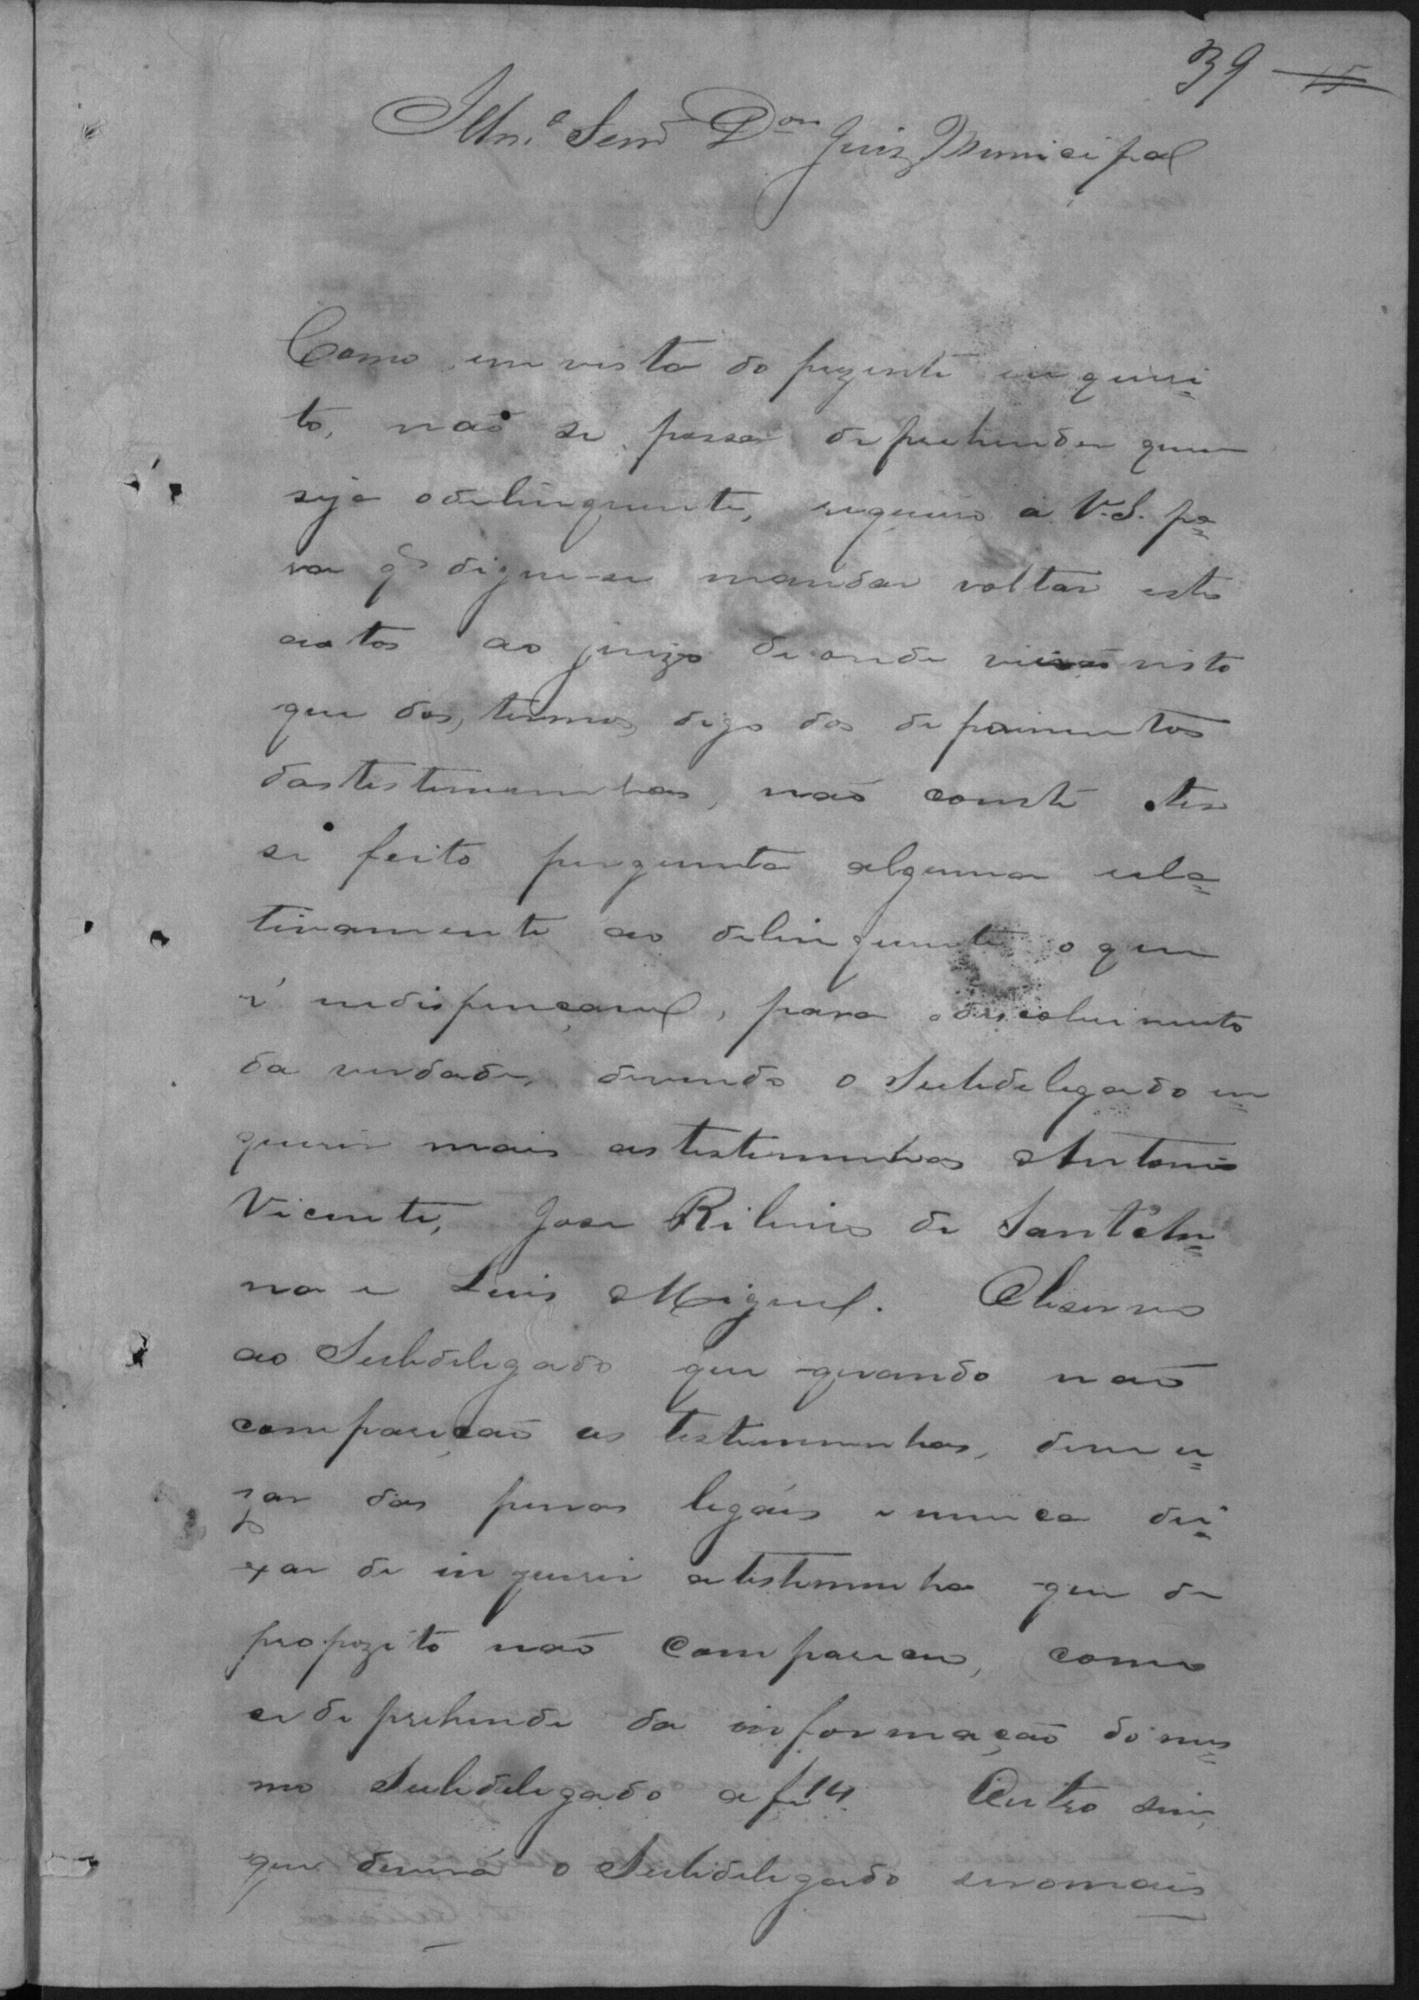 39 15
Illm.º Senr Dor Juiz Municipal
Como em vista do prezente inqueri=
to, não se possa deprehender quem
seja o delinquente, requeiro a V.S. pa=
ra q̃ digne-se mandar voltar estes
autos ao juizo de onde vierão visto
que dos, termos, digo dos depoimentos
das testemunhas, não conste ter
se feito pergunta alguma rela=
tivamente ao delinquente o que
é indispençavel, para o descobrimento
da verdade, devendo o Subdelegado in=
querir mais as testemunhas Antonio
Vicente, José Ribeiro de Sant'An=
na e Luis Miguel. Observo
ao Subdelegado que quando não
compareção as testemunhas, deve u=
zar das penas legáis e nunca dei=
xar de inquerir a testemunha que de
propozito não compareceu, como
se deprehende da informação do mes=
mo Subdelegado a fl 14. Outro sim,
que deverá o Subdelegado ser mais